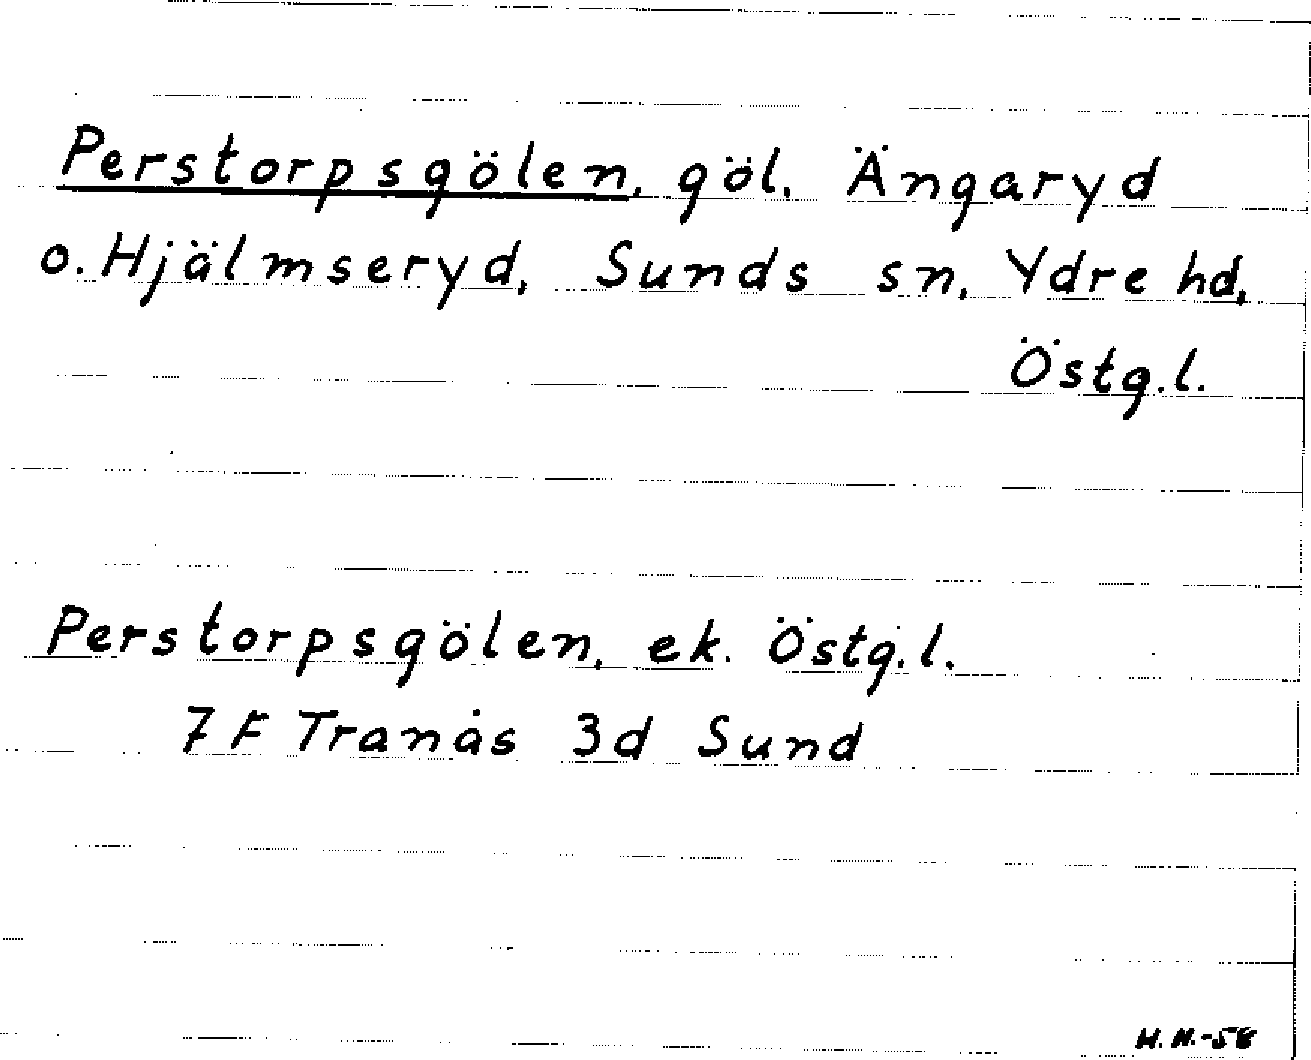 Perstorpsgölen, göl, Ängaryd
o. Hjälmseryd, Sunds sn, Ydre hd,
Östg.l.
Perstorpsgölen, ek. Östg.l.
7 F Tranås 3d Sund